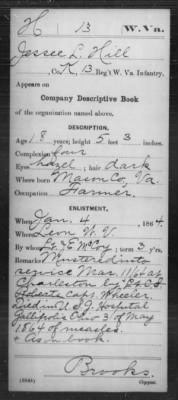 H 13 W. Va.
Jessee L. Hill
Co. K, 13 Reg't W. Va. Infantry.
Appears on
Company Descriptive Book
of the organization named above.
DESCRIPTION.
Age 18 years; height 5 feet 3 inches.
Complexion fair
Eyes hazel; hair dark
Where born Mason Co, Va.
Occupation Farmer.
ENLISTMENT.
When Jan. 4, 1864.
Where Leon W.V.
By McCoy; term 3 y'rs.
Remarks: Mustered into
service Mar. 11/64 at
Charleston by
Roberts, Capt. Wheeler.
Died in U.S.G. Hospital
Gallipolis Ohio 3d of May
1864 of measles.
* As in book.
Brooks.
Copyist.